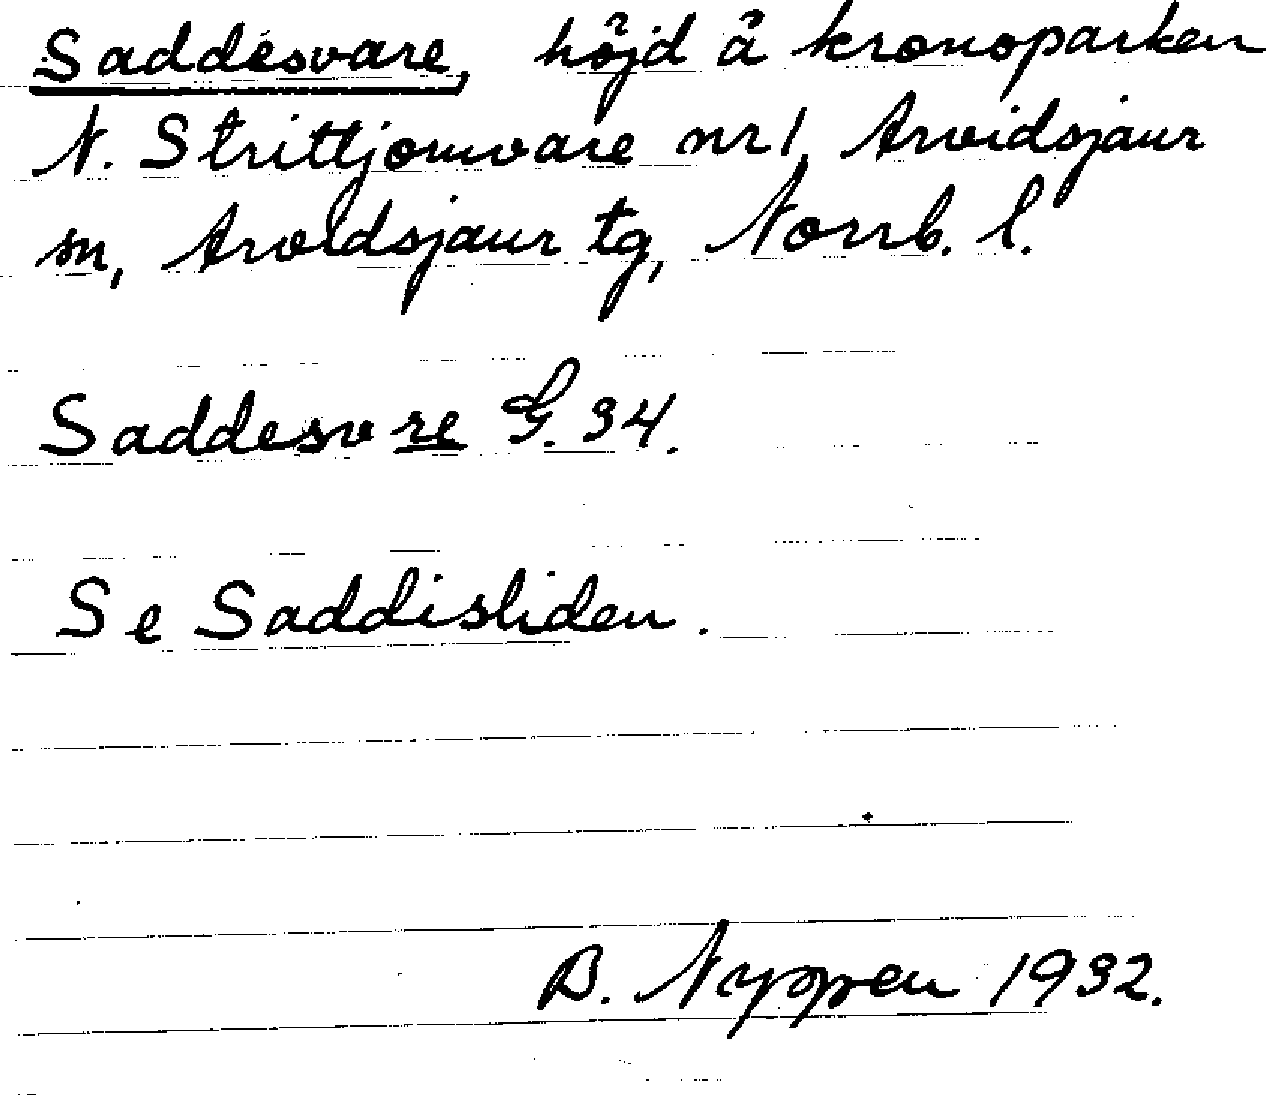 Saddesvare, höjd å kronoparken
N. Strittjomvare nr 1, Arvidsjaur
sn, Arvidsjaur tg, Norrb. l.
Saddesvre G. 34.
Se Saddisliden.
B. Nyppen 1932.